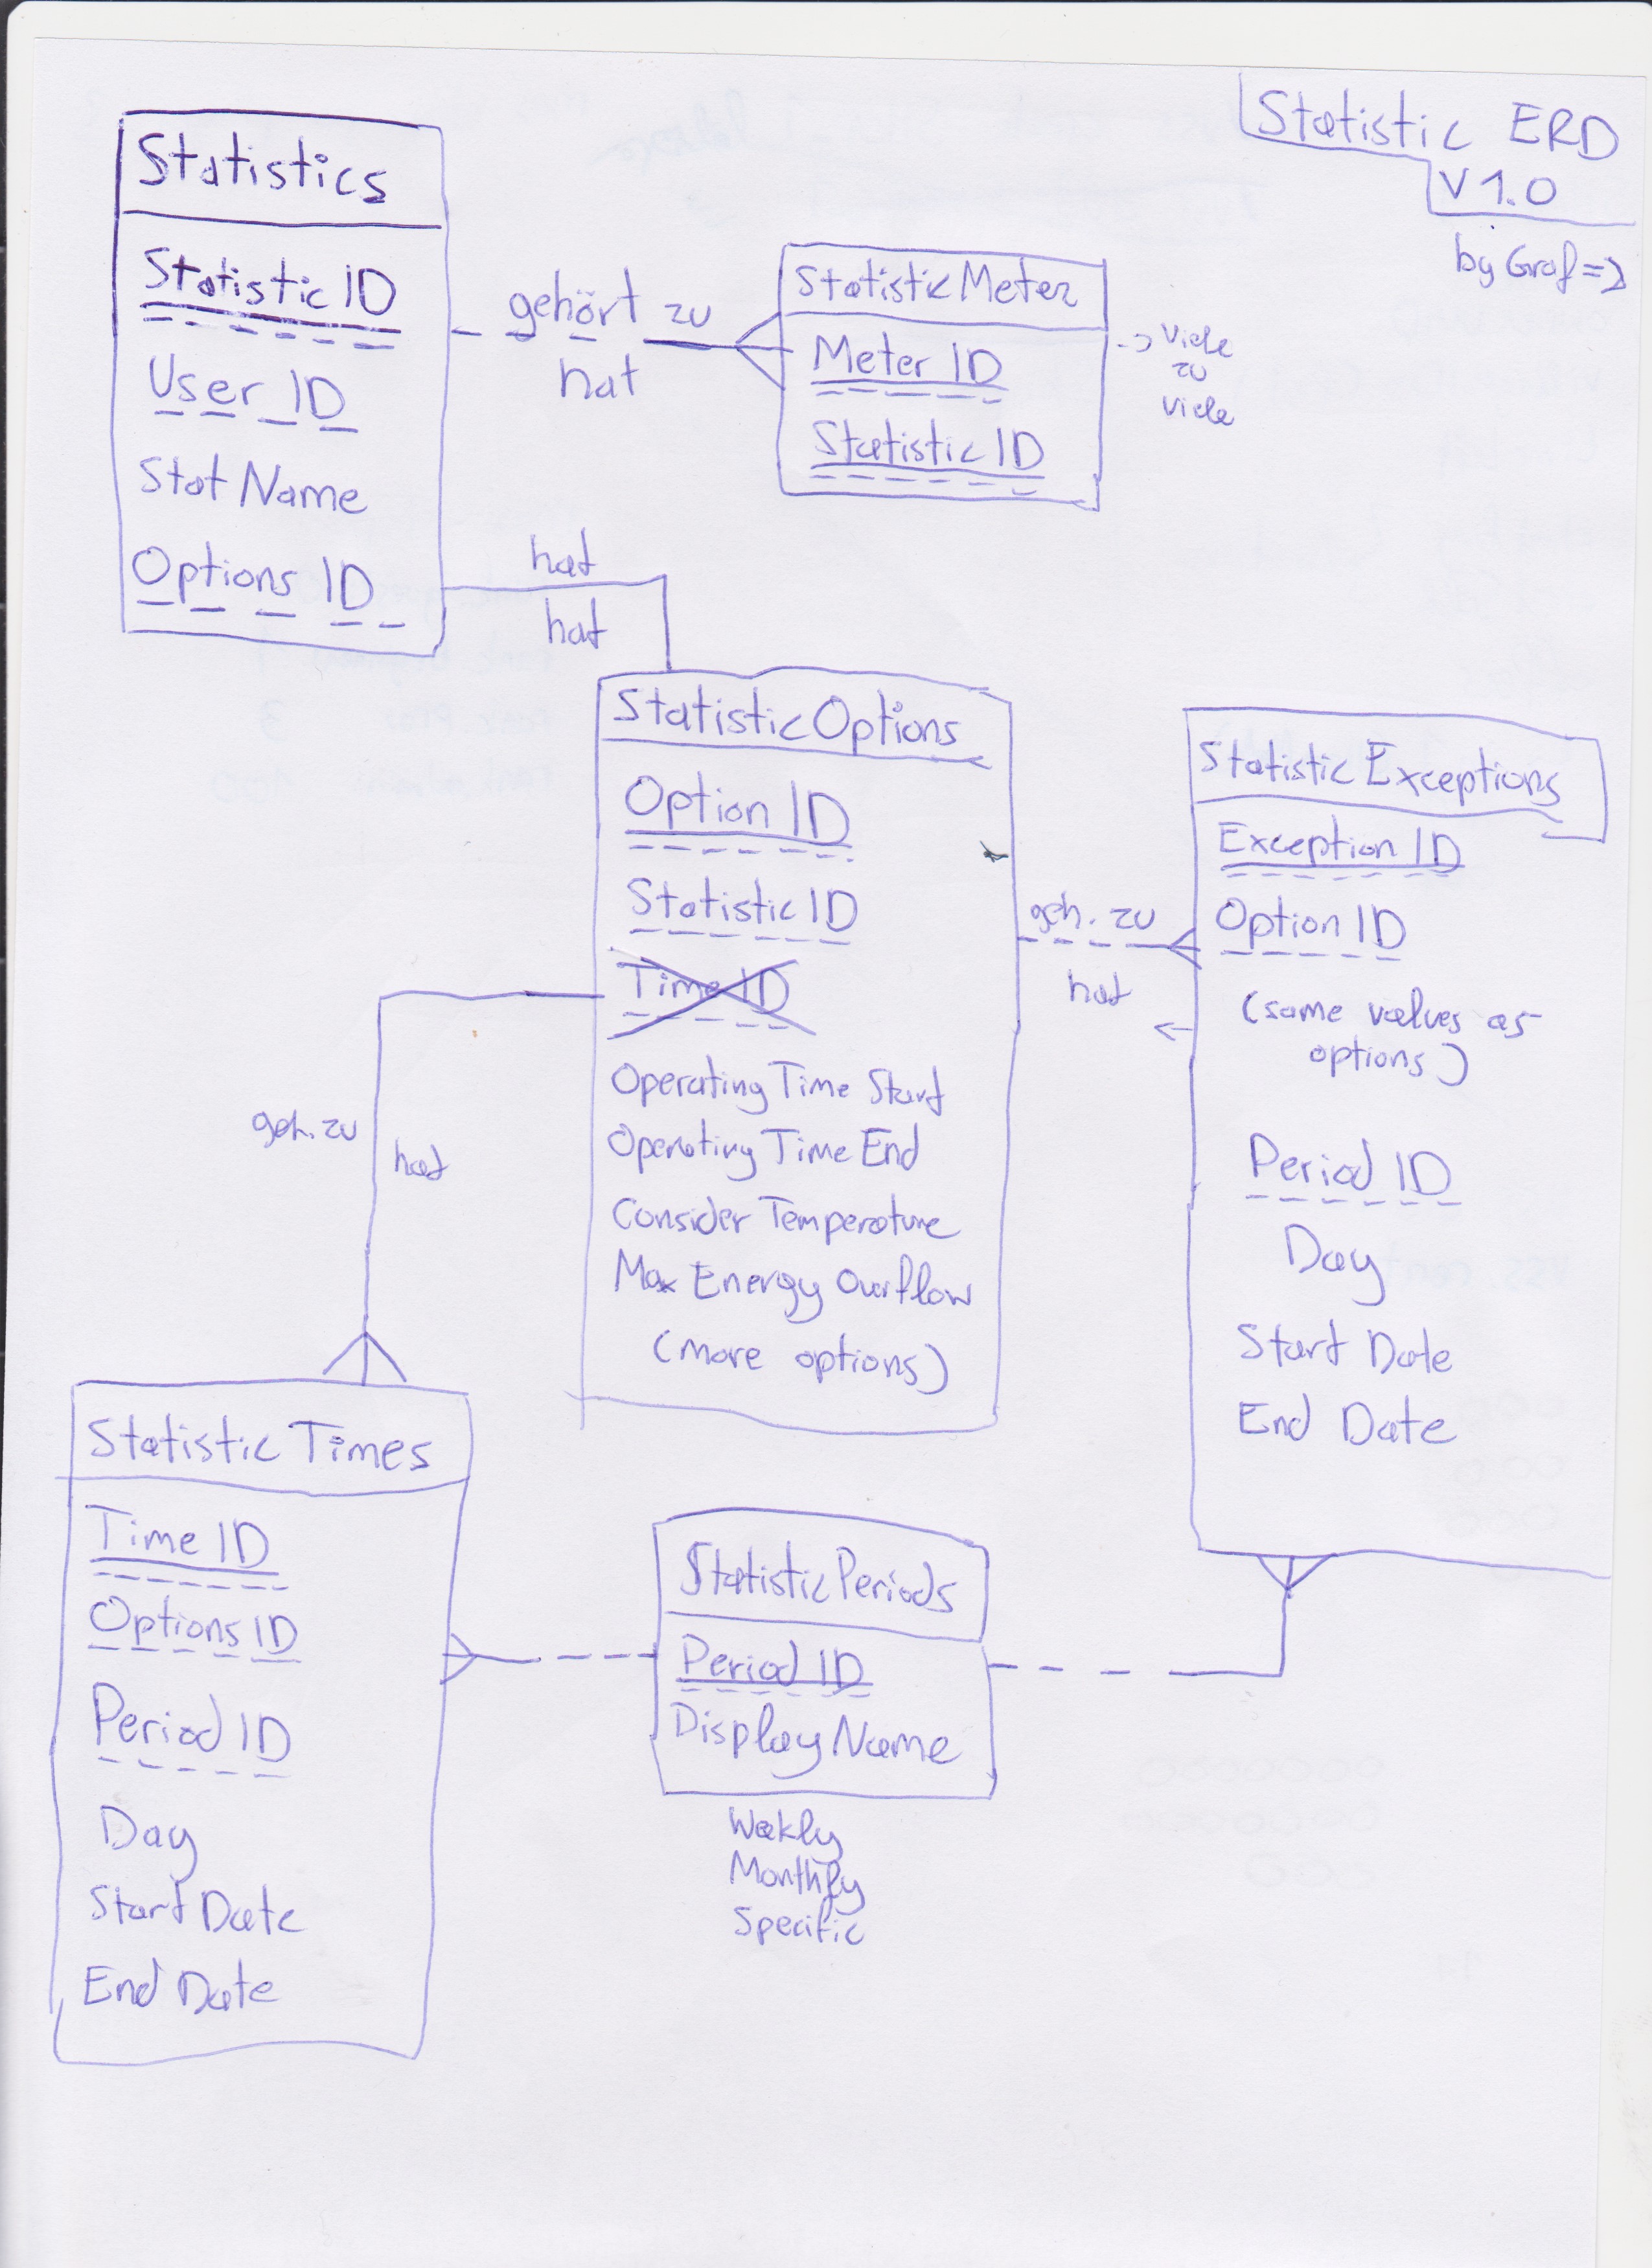 Statistic ERD
V 1.0
by Graf =>
Statistics
Statistic ID
User_ID
Stat Name
Options ID
gehört zu
hat
Statistic Meter
Meter ID
Statistic ID
-> Viele
zu
Viele
hat
hat
Statistic Options
Option ID
Statistic ID
Time ID
Operating Time Start
Operating Time End
Consider Temperature
Max Energy Ourflow
(more options)
geh. zu
hat
Statistic Exceptions
Exception ID
Option ID
(same values as
options)
Period ID
Day
Start Date
End Date
geh. zu
hat
Statistic Times
Time ID
Options ID
Period ID
Day
Start Date
End Date
Statistic Periods
Period ID
Display Name
Weekly
Monthly
Specific